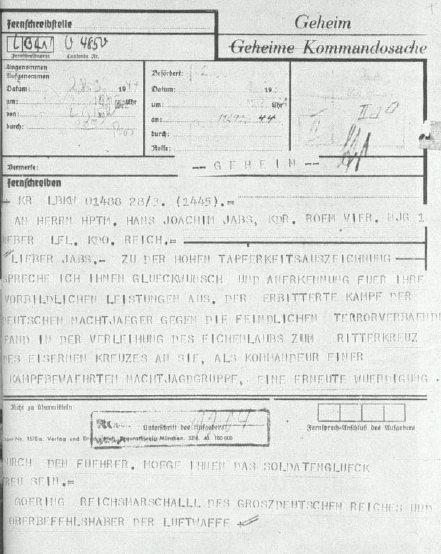 Fernschreibstelle
Geheim
Geheime Kommandosache
LBKV
Fernschreibname
Laufende Nr.
Angenommen
Aufgenommen
Datum: 19
um: Uhr
von:
durch:
Befördert:
Datum: 19
um: Uhr
an:
durch:
Rolle:
Vermerke:
-- G E H E I M --
Fernschreiben
+ KR LBKV 01488 28/3. (1445).=
AN HERRN HPTM. HANS JOACHIM JABS, KDR. ROEM VIER. NJG 1
UEBER LFL. KDO. REICH.=
LIEBER JABS.- ZU DER HOHEN TAPFERKEITSAUSZEICHNUNG
SPRECHE ICH IHNEN GLUECKWUNSCH UND ANERKENNUNG FUER IHRE
VORBILDLICHEN LEISTUNGEN AUS. DER ERBITTERTE KAMPF DER
DEUTSCHEN NACHTJAEGER GEGEN DIE FEINDLICHEN TERRORVERBAENDE
FAND IN DER VERLEIHUNG DES EICHENLAUBS ZUM RITTERKREUZ
DES EISERNEN KREUZES AN SIE, ALS KOMMANDEUR EINER
KAMPFBEWAEHRTEN NACHTJAGDGRUPPE, EINE ERNEUTE WUERDIGUNG
Nicht zu übermitteln
Unterschrift des Aufgebers
Fernsprech-Anschluß des Aufgebers
DURCH DEN FUEHRER. MOEGE IHNEN DAS SOLDATENGLUECK
TREU SEIN.=
GOERING REICHSMARSCHALLL DES GROSZDEUTSCHEN REICHES UND
OBERBEFEHLSHABER DER LUFTWAFFE +